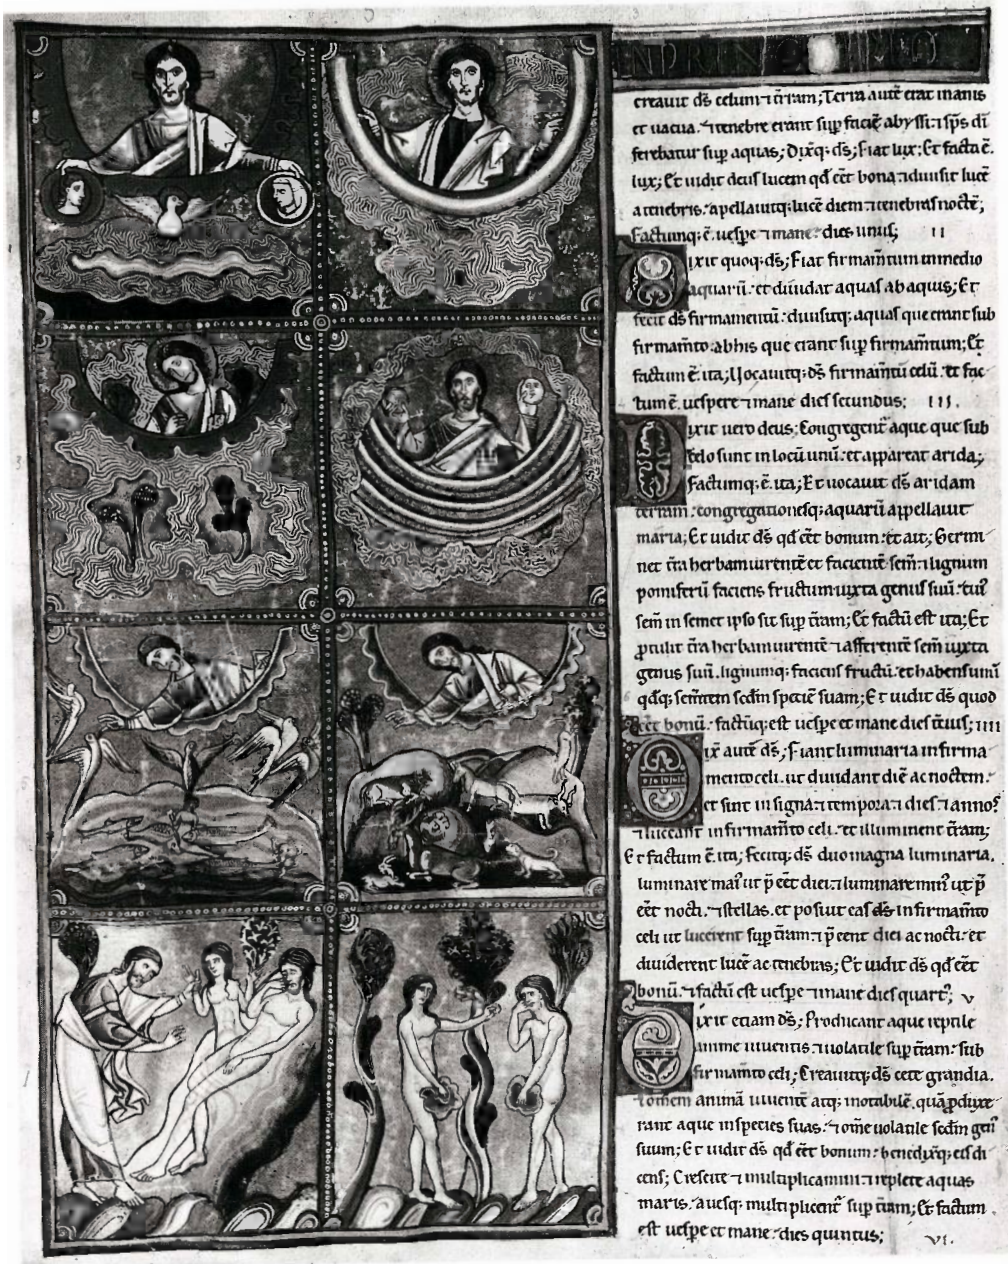 NDRIN
creauit dſ celum ⁊ t̄ram; Terra aute̅ erat inanis
et uacua. ⁊ tenebre erant sup̱ facie̅ abyſſi: ⁊ ſp̅s di̅
ferebatur ſup̱ aquas; Dixq; dſ; Fiat lux; Et facta e̅.
lux; Et uidit deus lucem qd̅ ee̅t bona: ⁊ diuiſit luce̅
a tenebris. apellauitq; luce̅ diem ⁊ tenebras nocte̅;
Factumq; e̅. ueſpe ⁊ mane. dies unuſ; II
Dixit quoq; dſ; Fiat firmam̅tum in medio
aquaru̅. et diuidat aquas ab aquis; Et
fecit dſ firmamentu̅. diuiſitq; aquas que erant ſub
firmam̅to. ab his que erant ſup̱ firmam̅tum; Et
factum e̅. ita; Uocauitq; dſ firmam̅tu̅ celu̅. et fac
tum e̅. ueſpere ⁊ mane dieſ ſecundus; III.
Dixit uero deus; Congregent̅ aque que ſub
celo ſunt in locu̅ unu̅. et appareat arida;
Factumq; e̅. ita; Et uocauit dſ aridam
terram. congregationeſq; aquaru̅ appellauit
maria; Et uidit dſ qd̅ ee̅t bonum. et ait; Germi
net t̄ra herbam uirente̅ et faciente̅ ſem̅. ⁊ lignum
pomiferu̅ faciens fructum iuxta genuſ ſuu̅. cuiꝰ
ſem̅ in ſemet ipſo ſit ſup̱ t̄ram; Et factu̅ eſt ita; Et
ꝓtulit t̄ra herbam uirente̅ ⁊ afferente̅ ſem̅ iuxta
genus ſuu̅. lignumq; faciens fructu̅. et habens unu̅
qd̅q; ſem̅tem ſcd̅m ſpecie̅ ſuam; Et uidit dſ quod
eet bonu̅. factu̅q; eſt ueſpe et mane dieſ t̄tiuſ; IIII
Dix̅ aute̅ dſ; Fiant luminaria in firma
mento celi. ut diuidant die̅ ac noctem.
et ſint in ſigna ⁊ tempora ⁊ dieſ ⁊ annoſ
⁊ luceant in firmam̅to celi. et illuminent t̄ram;
Et factum e̅. ita; Fecitq; dſ duo magna luminaria.
luminare maiꝰ ut p̱eet diei. ⁊ luminare minꝰ ut p̱
eet nocti. ⁊ ſtellas. et poſuit eaſ dſ in firmam̅to
celi ut lucerent ſup̱ t̄ram: ⁊ p̱eent diei ac nocti. et
diuiderent luce̅ ac tenebras; Et uidit dſ qd̅ ee̅t
bonu̅. ⁊ factu̅ eſt ueſpe ⁊ mane dieſ quartꝰ; V
Dixit etiam dſ; Producant aque reptile
anime uiuentis. ⁊ uolatile ſup̱ t̄ram. ſub
firmam̅to celi; Creauitq; dſ cete grandia.
⁊ omem anima̅ uiuente̅ atq; motabile̅. qua̅ ꝓduxe
rant aque in ſpecies ſuas. ⁊ om̅e uolatile ſcd̅m genꝰ
ſuum; Et uidit dſ qd̅ ee̅t bonum. benedixq; eiſ di
cens; Creſcite ⁊ multiplicamini ⁊ replete aquas
maris. aueſq; multiplicent̅ ſup̱ t̄ram; Et factum
eſt ueſpe et mane. dies quintus; VI.